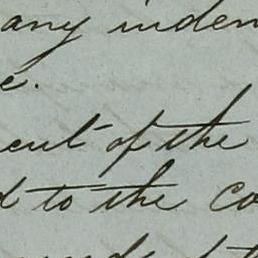 any inden
e.
ent of the
d to the co